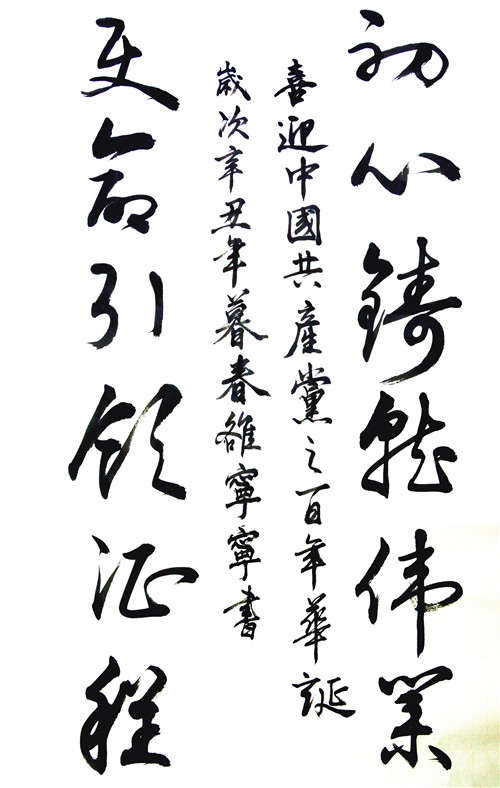 初心鑄就伟業
喜迎中國共產黨之百年華誕
歲次辛丑年暮春雒寧寧書
使命引领征程